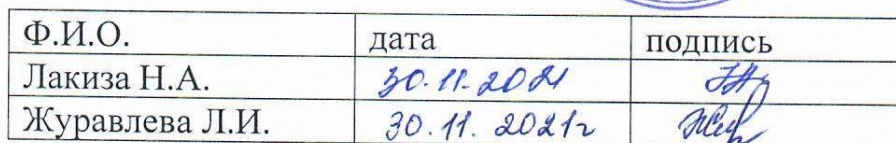 Ф.И.О. дата подпись
Лакиза Н.А. 30.11.2021
Журавлева Л.И. 30.11.2021г